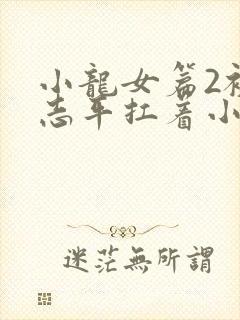 小龍女篇2
志平扛著小
迷茫無所謂